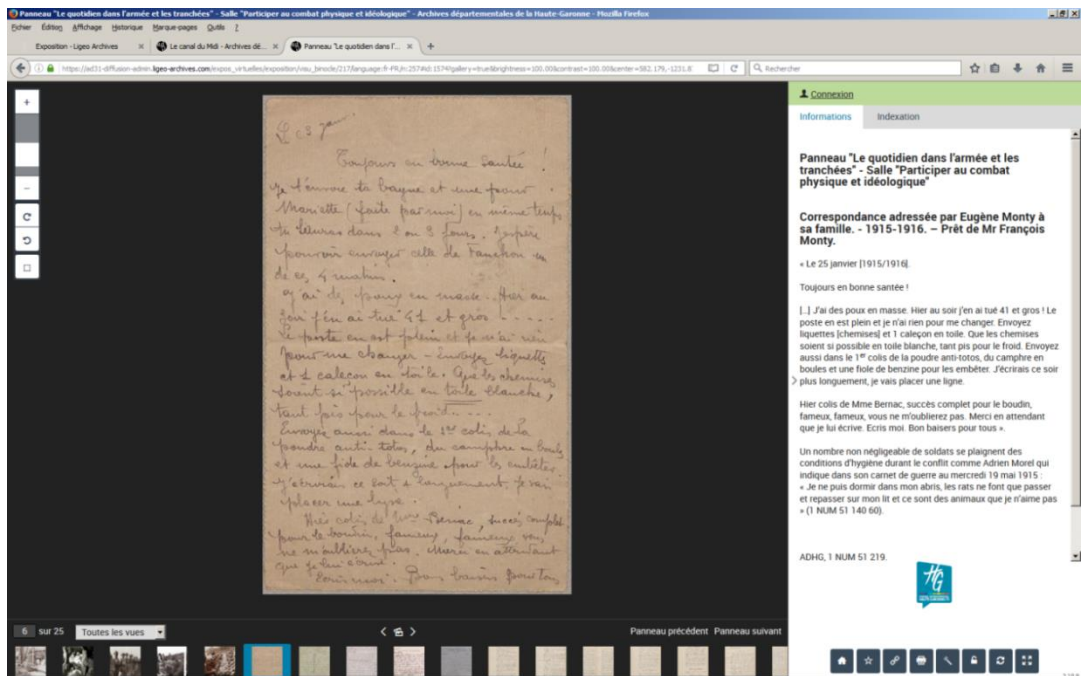 Panneau "Le quotidien dans l'armée et les tranchées" - Salle "Participer au combat physique et idéologique" - Archives départementales de la Haute-Garonne - Mozilla Firefox
Fichier Édition Affichage Historique Marque-pages Outils ?
Exposition - Ligeo Archives × Le canal du Midi - Archives dé... × Panneau "Le quotidien dans l'... × +
https://ad31-diffusion-admin.ligeo-archives.com/expos_virtuelles/exposition/visu_binocle/217/language:fr-FR/n:257#id:1574?gallery=true&brightness=100.00&contrast=100.00&center=582.179,-1231.8
Rechercher
Toujours en bonne santée !
Je t'envoie ta bague et une pour
Mariette (faite par moi) en même temps
tu l'auras dans 2 ou 3 jours. J'espère
pouvoir envoyer celle de Fanchon un
de ces 4 matins.
J'ai des poux en masse. Hier au
soir j'en ai tué 41 et gros - - - - -
Le poste en est plein et je n'ai rien
pour me changer - Envoyez liquettes
et 1 caleçon en toile. Que les chemises
soient si possible en toile blanche,
tant pis pour le froid - - - -
Envoyez aussi dans le 1er colis de la
poudre anti-totos, du camphre en boules
et une fiole de benzine pour les embêter.
J'écrirais ce soir + longuement, je vais
placer une ligne.
Hier colis de Mme Bernac, succès complet
pour le boudin, fameux, fameux vous
ne m'oublierez pas. Merci en attendant
que je lui écrive.
Ecris moi. Bons baisers pour tous
Connexion
Informations Indexation
Panneau "Le quotidien dans l'armée et les
tranchées" - Salle "Participer au combat
physique et idéologique"
Correspondance adressée par Eugène Monty à
sa famille. - 1915-1916. – Prêt de Mr François
Monty.
« Le 25 janvier [1915/1916].
Toujours en bonne santée !
[...] J'ai des poux en masse. Hier au soir j'en ai tué 41 et gros ! Le
poste en est plein et je n'ai rien pour me changer. Envoyez
liquettes [chemises] et 1 caleçon en toile. Que les chemises
soient si possible en toile blanche, tant pis pour le froid. Envoyez
aussi dans le 1er colis de la poudre anti-totos, du camphre en
boules et une fiole de benzine pour les embêter. J'écrirais ce soir
plus longuement, je vais placer une ligne.
Hier colis de Mme Bernac, succès complet pour le boudin,
fameux, fameux, vous ne m'oublierez pas. Merci en attendant
que je lui écrive. Ecris moi. Bon baisers pour tous ».
Un nombre non négligeable de soldats se plaignent des
conditions d'hygiène durant le conflit comme Adrien Morel qui
indique dans son carnet de guerre au mercredi 19 mai 1915 :
« Je ne puis dormir dans mon abris, les rats ne font que passer
et repasser sur mon lit et ce sont des animaux que je n'aime pas
» (1 NUM 51 140 60).
ADHG, 1 NUM 51 219.
HG
6 sur 25 Toutes les vues Panneau précédent Panneau suivant